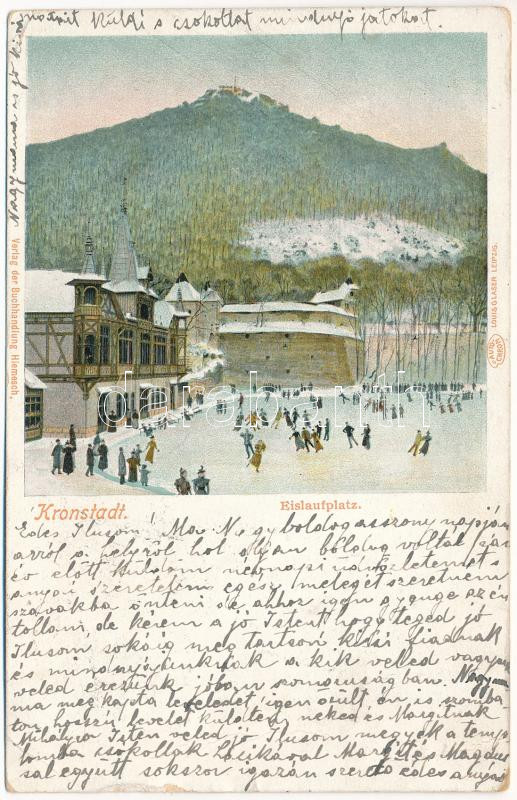 Kuldi s csokoltat mindnyájatokat.
Nagymama és jó
Verlag der Buchhandlung Hiemesch.
LOUIS GLASER LEIPZIG.
AUTO CHROM
darabanth.com
Kronstadt. Eislaufplatz.
Edes Ilusom! Ma Nagyboldogasszony napján
arról a helyről hol olyan boldog voltál
év előtt küldöm névnapi üdvözletemet s
anyai szeretetem egész melegét szeretném
szavakba önteni de ahhoz igen gyenge az én
tollam, de kérem a jó Istent hogy téged jó
Ilusom sokáig meg tartson kisfiadnak
és mindnyájunknak a kik veled vagyunk
veled érezünk jóban szomoruságban. Nagymama
ma meg kapta leveledet igen örült én is szombaton
hosszú levelet küldtem neked és Margitnak
Mihályra Isten veled jó Ilusom megyek a templomba
csokollak Lacikával Margit és
együtt sokszor igazán szerető édes anyád